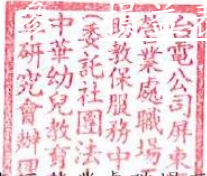 台電公司屏東
營業處職場
助教保服務中
(委託社團法
中華幼兒教育
研究會辦